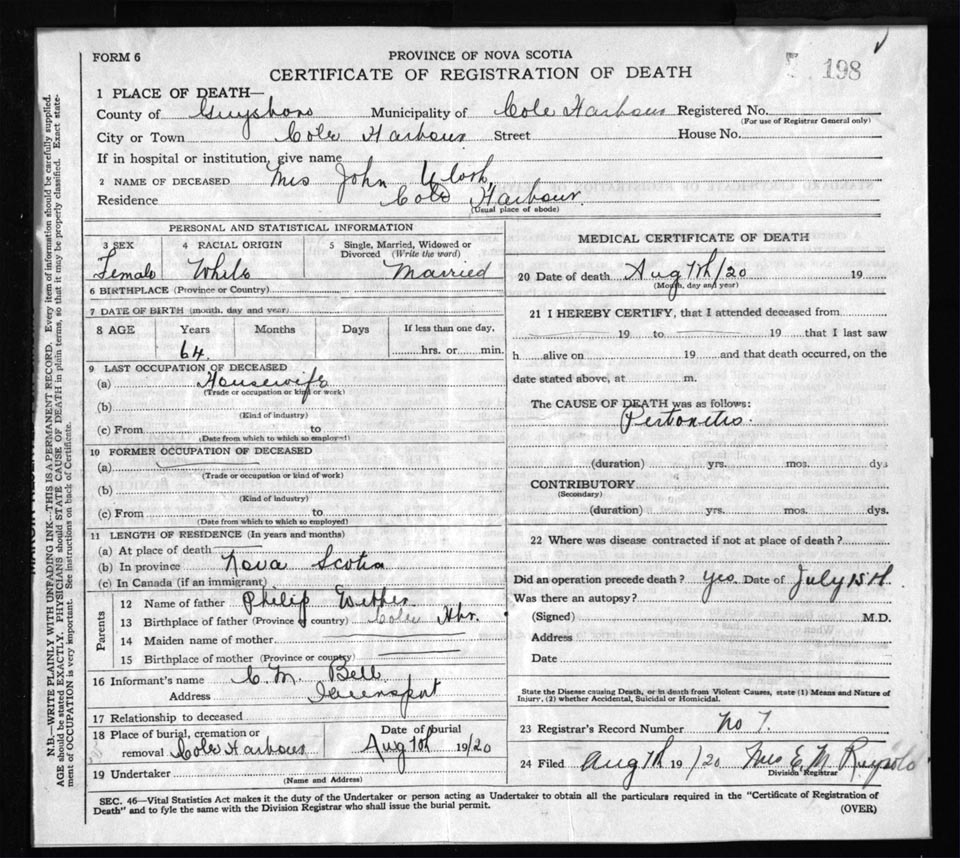 FORM 6
PROVINCE OF NOVA SCOTIA
CERTIFICATE OF REGISTRATION OF DEATH
198
1 PLACE OF DEATH—
County of Guysboro Municipality of Cole Harbour Registered No.
(For use of Registrar General only)
City or Town Cole Harbour Street House No.
If in hospital or institution, give name
2 NAME OF DECEASED Mrs John
Residence Cole Harbour
(Usual place of abode)
PERSONAL AND STATISTICAL INFORMATION
3 SEX 4 RACIAL ORIGIN 5 Single, Married, Widowed or Divorced (Write the word)
Female White Married
6 BIRTHPLACE (Province or Country)
7 DATE OF BIRTH (month, day and year)
8 AGE Years Months Days If less than one day,
64 hrs. or min.
9 LAST OCCUPATION OF DECEASED
(a) Housewife
(Trade or occupation or kind of work)
(b)
(Kind of industry)
(c) From to
(Date from which to which so employed)
10 FORMER OCCUPATION OF DECEASED
(a)
(Trade or occupation or kind of work)
(b)
(Kind of industry)
(c) From to
(Date from which to which so employed)
11 LENGTH OF RESIDENCE (In years and months)
(a) At place of death
(b) In province Nova Scotia
(c) In Canada (if an immigrant)
Parents
12 Name of father Philip
13 Birthplace of father (Province or country) Cole Hbr.
14 Maiden name of mother
15 Birthplace of mother (Province or country)
16 Informant's name C. M. Bell
Address
17 Relationship to deceased
18 Place of burial, cremation or removal Cole Harbour
Date of burial
Aug 7th 19/20
19 Undertaker
(Name and Address)
MEDICAL CERTIFICATE OF DEATH
20 Date of death Aug 7th/20 19
(Month, day and year)
21 I HEREBY CERTIFY, that I attended deceased from
19 to 19 that I last saw
h alive on 19 and that death occurred, on the
date stated above, at m.
The CAUSE OF DEATH was as follows:
(duration) yrs. mos. dys
CONTRIBUTORY
(Secondary)
(duration) yrs. mos. dys.
22 Where was disease contracted if not at place of death?
Did an operation precede death? yes Date of July 15th
Was there an autopsy?
(Signed) M.D.
Address
Date
State the Disease causing Death, or in death from Violent Causes, state (1) Means and Nature of
Injury, (2) whether Accidental, Suicidal or Homicidal.
23 Registrar's Record Number No 7.
24 Filed Aug 7th 19/20 Mrs E. M.
Division Registrar
SEC. 46—Vital Statistics Act makes it the duty of the Undertaker or person acting as Undertaker to obtain all the particulars required in the "Certificate of Registration of
Death" and to fyle the same with the Division Registrar who shall issue the burial permit.
(OVER)
N.B.—WRITE PLAINLY WITH UNFADING INK—THIS IS A PERMANENT RECORD. Every item of information should be carefully supplied.
AGE should be stated EXACTLY. PHYSICIANS should STATE CAUSE OF DEATH in plain terms, so that it may be properly classified. Exact state-
ment of OCCUPATION is very important. See instructions on back of Certificate.